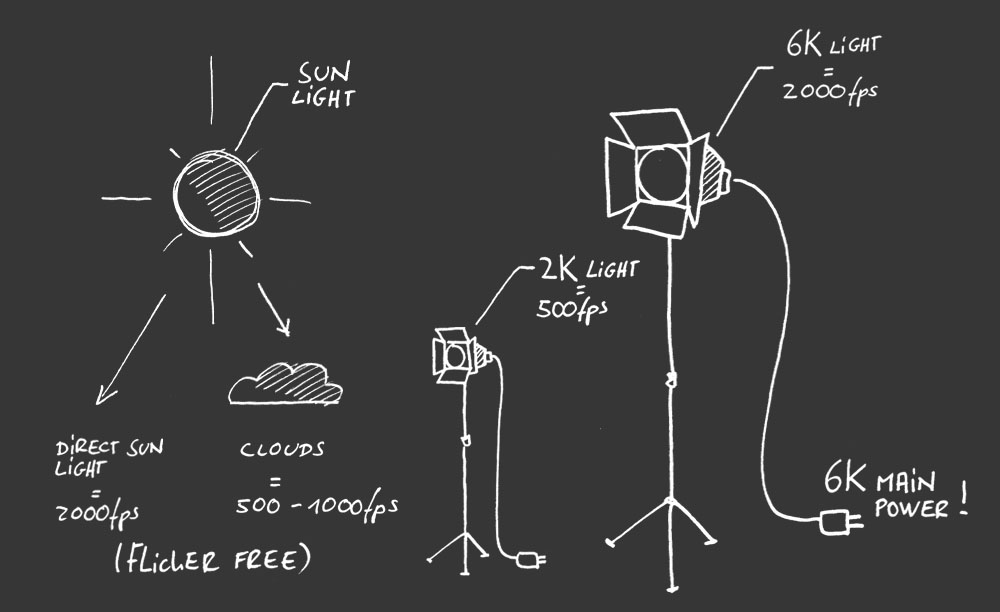 SUN
LiGHT
DiRECT SUN
LiGHT
=
2000fps
CLOUDS
=
500 - 1000fps
(FLicKER FREE)
2K LiGHT
=
500fps
6K LiGHT
=
2000fps
6K MAiN
POWER!